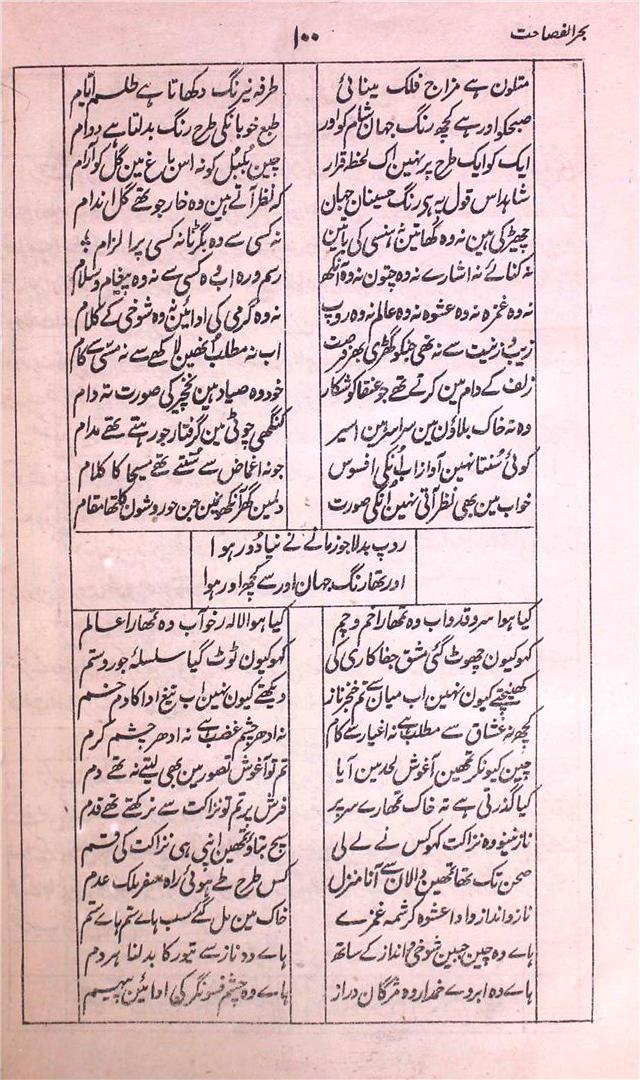 بحر الفصاحت
۱۰۰
متلون ہے مزاج فلک مینائی
طرفہ نیرنگ دکھاتا ہے طلسم ایام
صبحکو اور ہے کچھ رنگ جہان شام کو اور
طبع خوبانکی طرح رنگ بدلتا ہے دوام
ایک کو ایک طرح پر نہین اک لحظہ قرار
چین بلبل کو نہ اس باغ مین گل کو آرام
شاہد اس قول پہ ہی رنگ حسینان جہان
کہ نظر آتے ہین وہ خار جو تھے گل اندام
چھیڑ کی ہین نہ وہ گھاتین نہ ہنسی کی باتین
نہ کسی سے وہ بگڑنا نہ کسی پر الزام
نہ کنائے نہ اشارے نہ وہ چتون نہ وہ آنکھ
رسم و رہ اب وہ کسی سے نہ وہ پیغام و سلام
نہ وہ غمزہ نہ وہ عشوہ نہ وہ عالم نہ وہ روپ
نہ وہ گرمی کی ادائین نہ وہ شوخی کے کلام
زیب و زینت سے نہ تھی جنکو گھڑی بھر فرصت
اب نہ مطلب انھین لاکھے سے نہ مسی سے کام
زلف کے دام مین کرتے تھے جو عنقا کو شکار
خود وہ صیاد ہین نخچیر کی صورت تہ دام
وہ تہ خاک بلاؤن مین سراسر ہین اسیر
کنگھی چوٹی مین گرفتار جو رہتے تھے مدام
کوئی سنتا نہین آواز اب اُنکی افسوس
جو نہ اغماض سے سنتے تھے مسیحا کا کلام
خواب مین بھی نظر آتی نہین اُنکی صورت
دلمین گھر آنکھ مین جن حور وشون کا تھا مقام
روپ بدلا جو زمانے نے نیا دور ہوا
اور تھا رنگ جہان اور سے کچھ اور ہوا
کیا ہوا سرو قدو اب وہ تمھارا خم و چم
کیا ہوا لالہ رخو آب وہ تمھارا عالم
کہو کیون چھوٹ گئی مشق جفا کاری کی
کہو کیون ٹوٹ گیا سلسلۂ جور و ستم
کھینچتے کیون نہین اب میان سے تم خنجر ناز
دیکھتے کیون نہین اب تیغ ادا کا دم خم
کچھ نہ عشاق سے مطلب ہے نہ اغیار سے کام
نہ ادھر چشم غضب ہے نہ ادھر چشم کرم
چین کیونکر تمھین آغوش لحد مین آیا
تم تو آغوش تصور مین بھی لیتے نہ تھے دم
کیا گذرتی ہے تہ خاک تمھارے سر پر
فرش پر تم تو نزاکت سے نہ رکھتے تھے قدم
نازنینو وہ نزاکت کہو کس نے لے لی
سچ بتاؤ تمھین اپنی ہی نزاکت کی قسم
صحن تک تھا تمھین دالان سے آنا منزل
کس طرح طے ہوئی راہ سفر ملک عدم
ناز و انداز و ادا عشوہ کرشمہ غمزے
خاک مین مل گئے سب ہاے ستم ہاے ستم
ہاے وہ چین جبین شوخی و انداز کے ساتھ
ہاے وہ ناز سے تیور کا بدلنا ہر دم
ہاے وہ ابروے خمدار وہ مژگان دراز
ہاے وہ چشم فسونگر کی ادائین پیہم